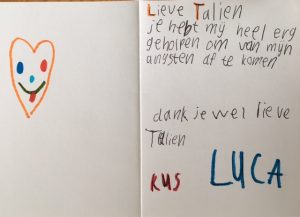 Lieve Talien
je hebt mij heel erg
geholpen om van mijn
angsten af te komen
dank je wel lieve
Talien
KUS LUCA